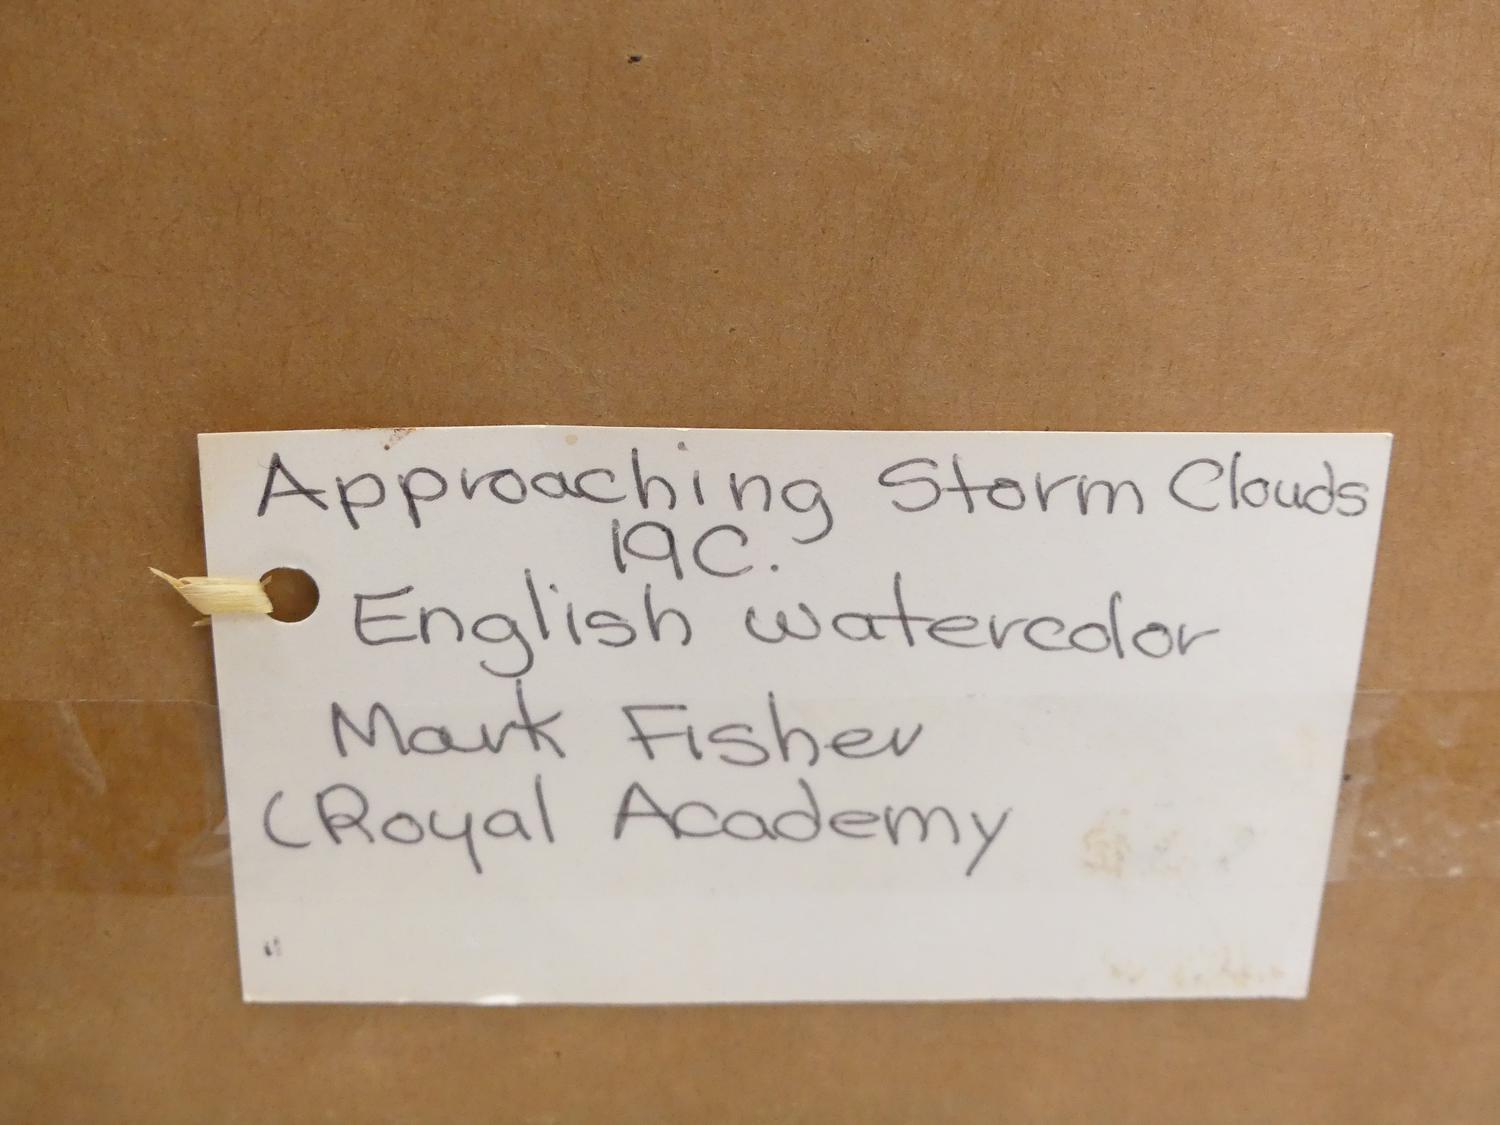 Approaching Storm Clouds
19C.
English watercolor
Mark Fisher
(Royal Academy